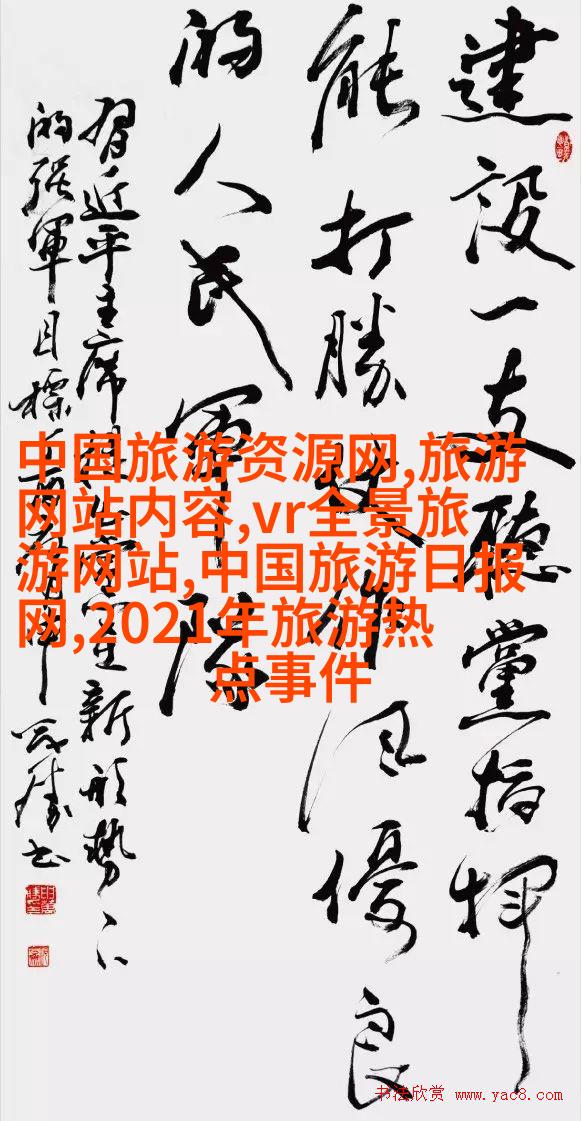 建設一支聽黨指揮
能打勝仗作风優良
的人民軍隊
習近平主席新形勢下
的强軍目標书
中国旅游资源网,旅游
网站内容,vr全景旅
游网站,中国旅游日报
网,2021年旅游热
点事件
书法欣赏 www.yac8.com